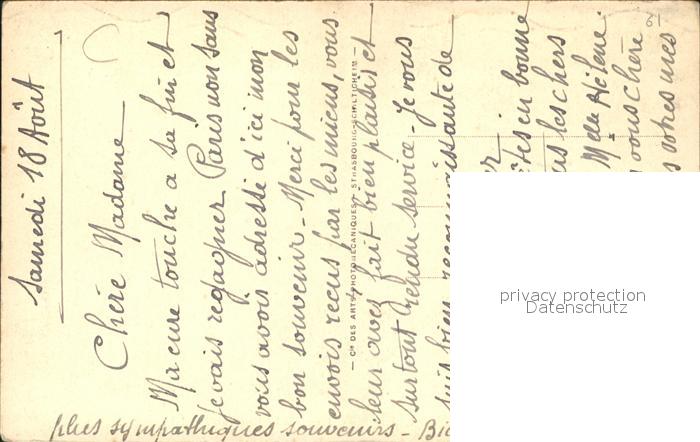 Samedi 18 Août
Chère Madame
Ma cure touche a sa fin et
je vais regagner Paris non sans
vous avoir adressé d'ici mon
bon souvenir - Merci pour les
envois reçus par les miens, vous
leur avez fait bien plaisir et
surtout rendu service - Je vous
suis bien reconnaissante de
êtes en bonne
les chers
Melle Hélène
vous chère
votres mes
plus sympathiques souvenirs -
- Cie DES ARTS PHOTOMÉCANIQUES, STRASBOURG-SCHILTIGHEIM -
61
privacy protection
Datenschutz